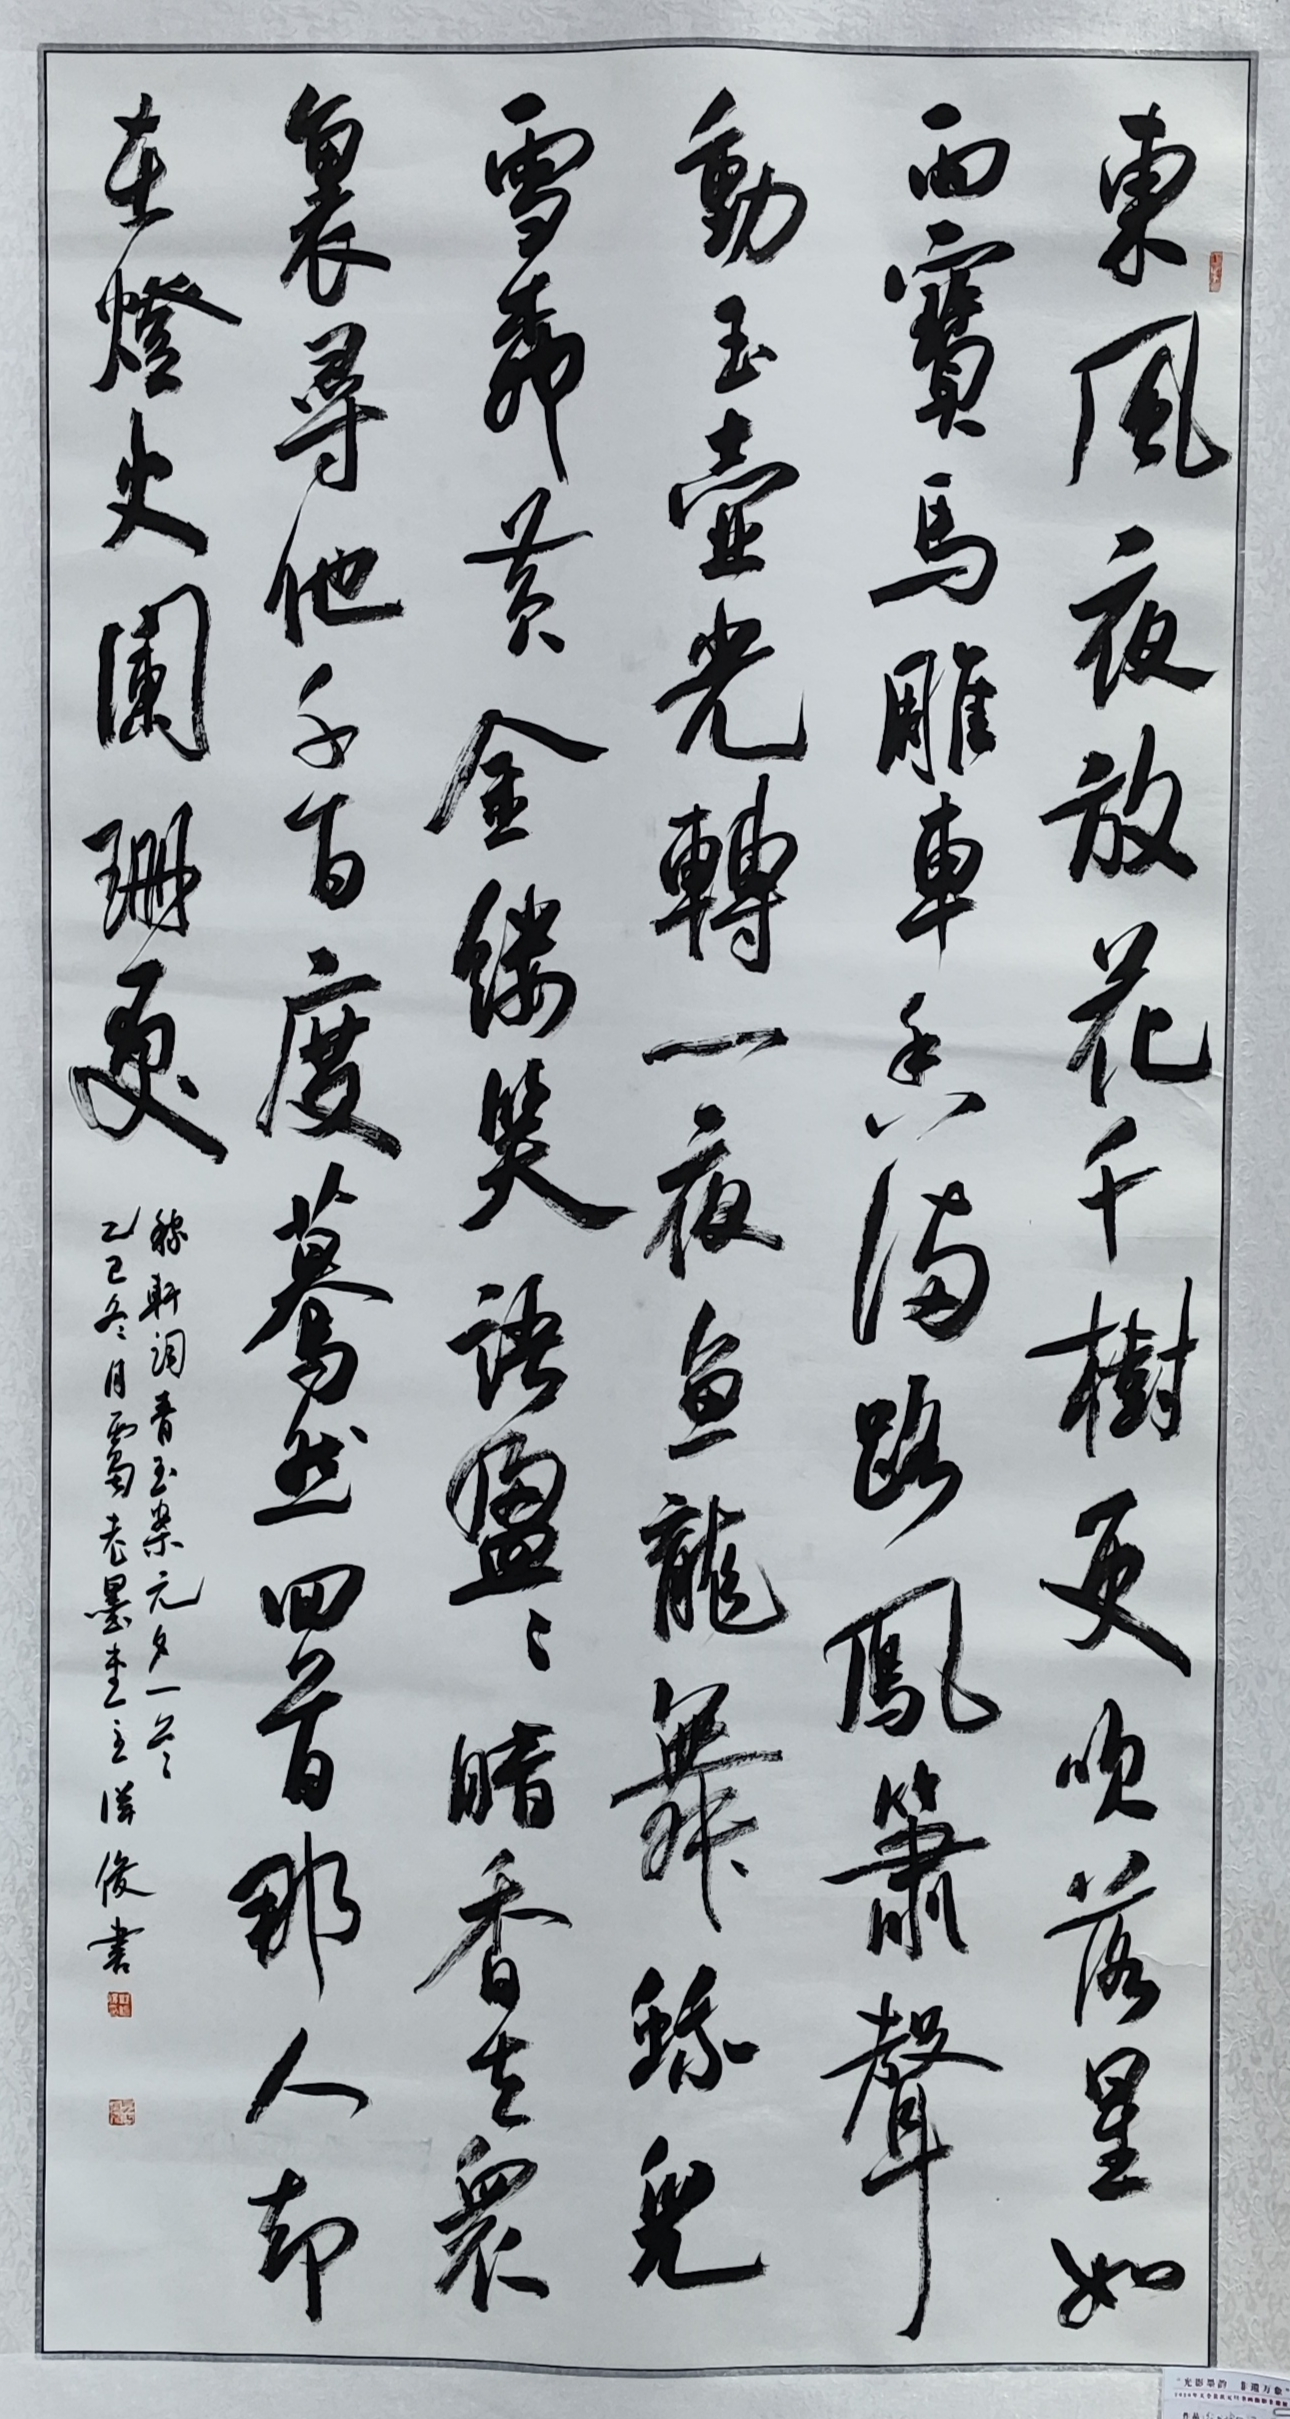 東風夜放花千樹更吹落星如
雨寳馬雕車香滿路鳳簫聲
動玉壺光轉一夜魚龍舞蛾兒
雪柳黃金縷笑語盈〻暗香去衆
裏尋他千百度驀然回首那人却
在燈火闌珊處
稼軒詞青玉案元夕一首
乙巳冬月老墨主俊書